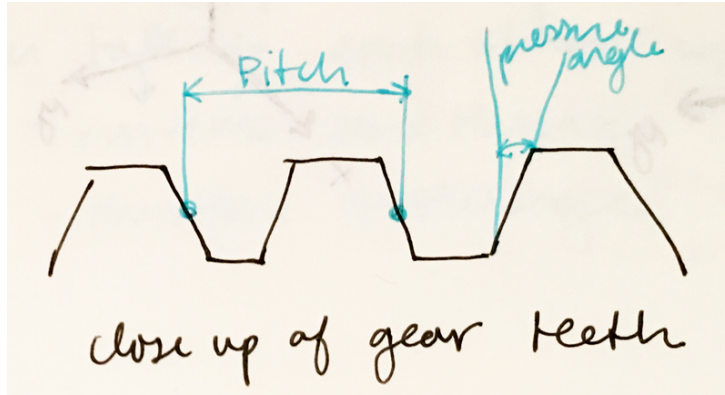 Pitch
pressure
angle
close up of gear teeth